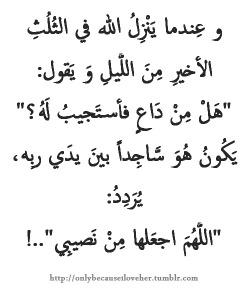 و عِندما يَنْزِلُ الله في الثُلُثِ
الأخيرِ مِنَ اللَّيلِ وَ يَقول:
"هَلْ مِنْ دَاعٍ فأستَجيبُ لَهُ؟"
يَكُونُ هُوَ سَّاجِداً بينَ يدَي ربِه،
يُرَدِدُ:
"اللَّهُمَ اجعَلها مِنْ نَصيبِي"..!
http://onlybecauseiloveher.tumblr.com